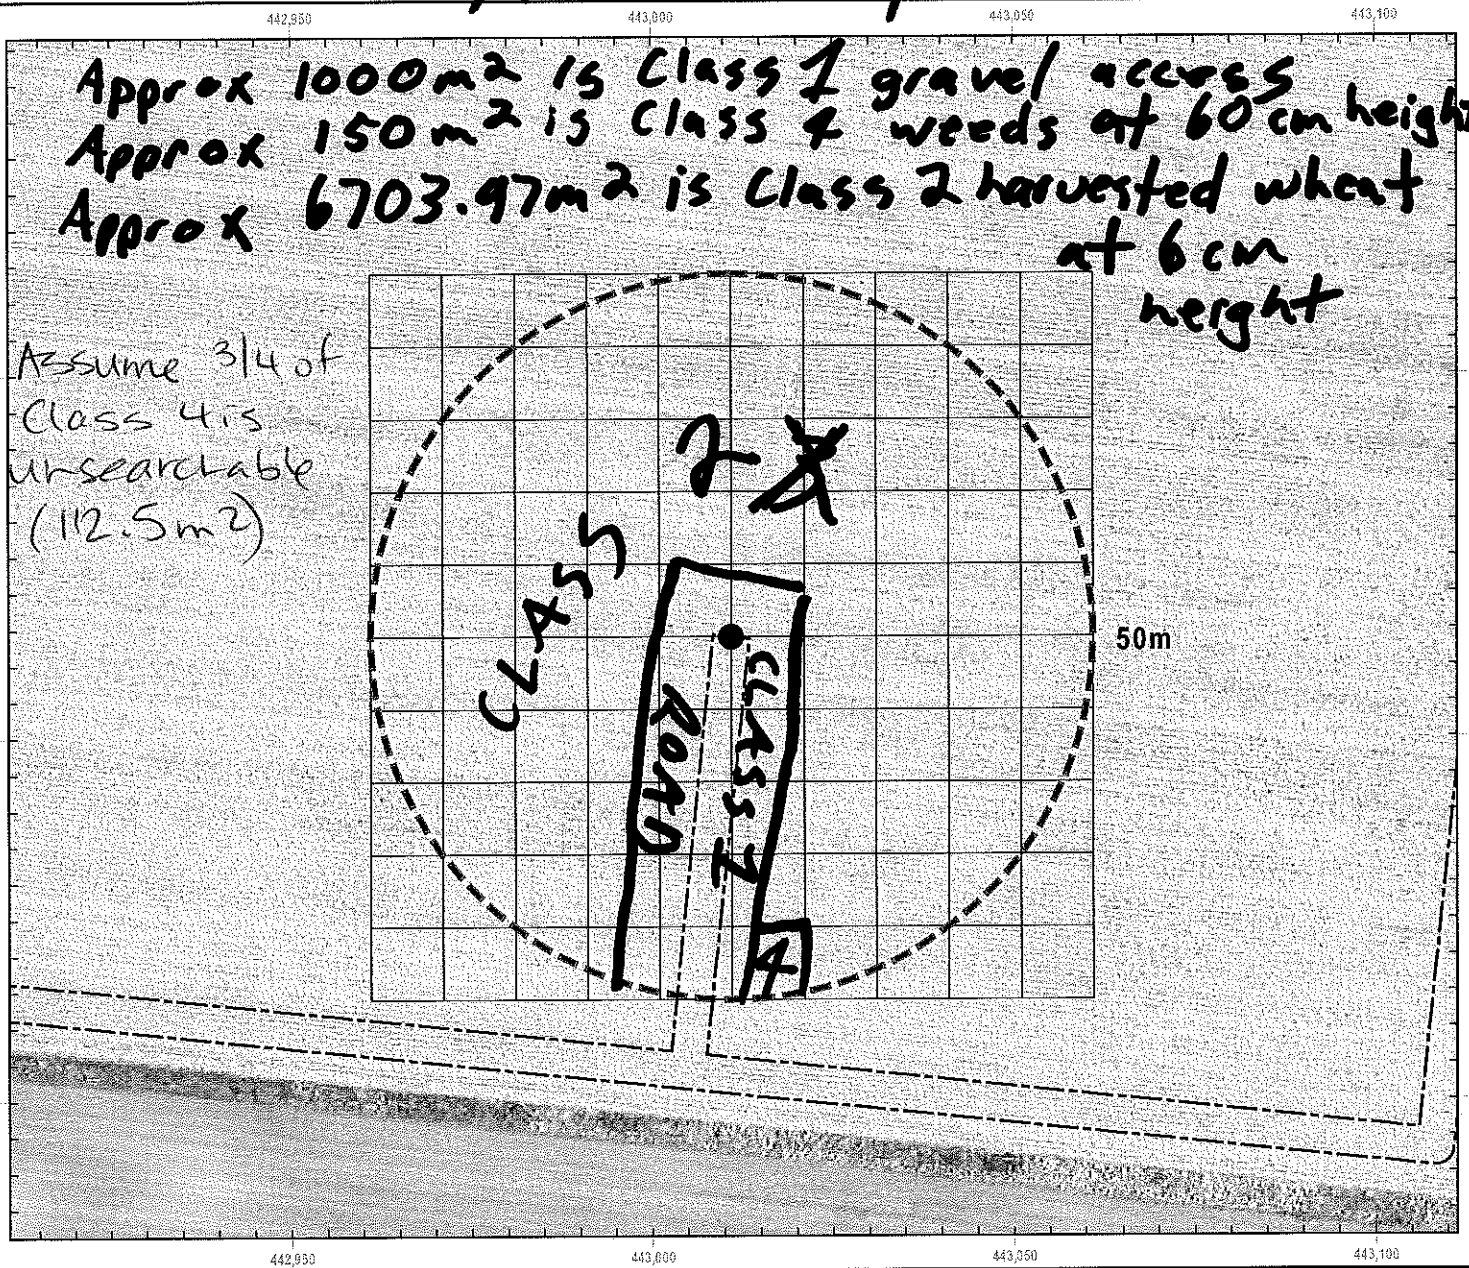 442,950 443,000 443,050 443,100
Approx 1000m² is Class 1 gravel access
Approx 150m² is Class 4 weeds at 60cm height
Approx 6703.97m² is Class 2 harvested wheat
at 6cm
height
Assume 3/4 of
Class 4 is
unsearchable
(112.5m²)
2
CLASS
50m
ROAD
CLASS 1
4
442,950 443,000 443,050 443,100